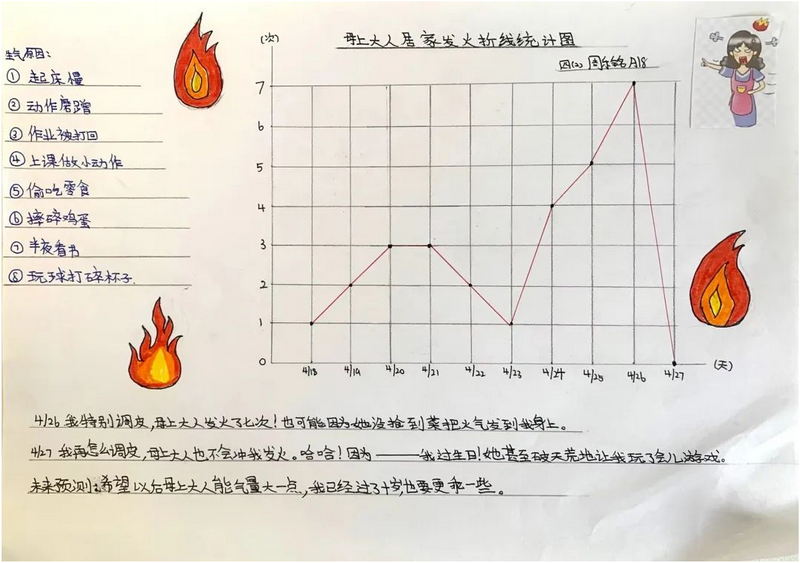 母上大人居家发火折线统计图
四(2) 周 A18
生气原因：
① 起床慢
② 动作磨蹭
③ 作业被打回
④ 上课做小动作
⑤ 偷吃零食
⑥ 摔碎鸡蛋
⑦ 半夜看书
⑧ 玩球打碎杯子.
(次)
7
6
5
4
3
2
1
0
4/18 4/19 4/20 4/21 4/22 4/23 4/24 4/25 4/26 4/27 (天)
4/26 我特别调皮，母上大人发火了七次！也可能因为她没抢到菜把火气发到我身上。
4/27 我再怎么调皮，母上大人也不会冲我发火。哈哈！因为——我过生日！她甚至破天荒地让我玩了会儿游戏。
未来预测：希望以后母上大人能气量大一点，我已经过了十岁也要更乖一些。